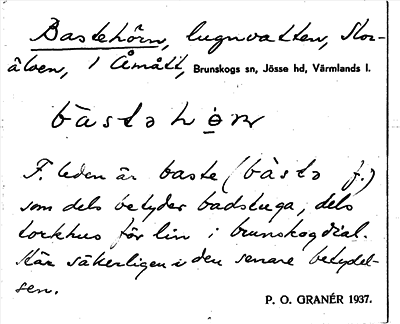 Bastehörn, lugnvatten, Stor-
älven, i Åmått, Brunskogs sn, Jösse hd, Värmlands l.
bàstəhɵ̀ɳ
F. leden är baste (bàstə f.)
som dels betyder badstuga, dels
torkhus för lin i brunskogdial.
Här säkerligen i den senare betydel-
sen.
P. O. GRANÉR 1937.